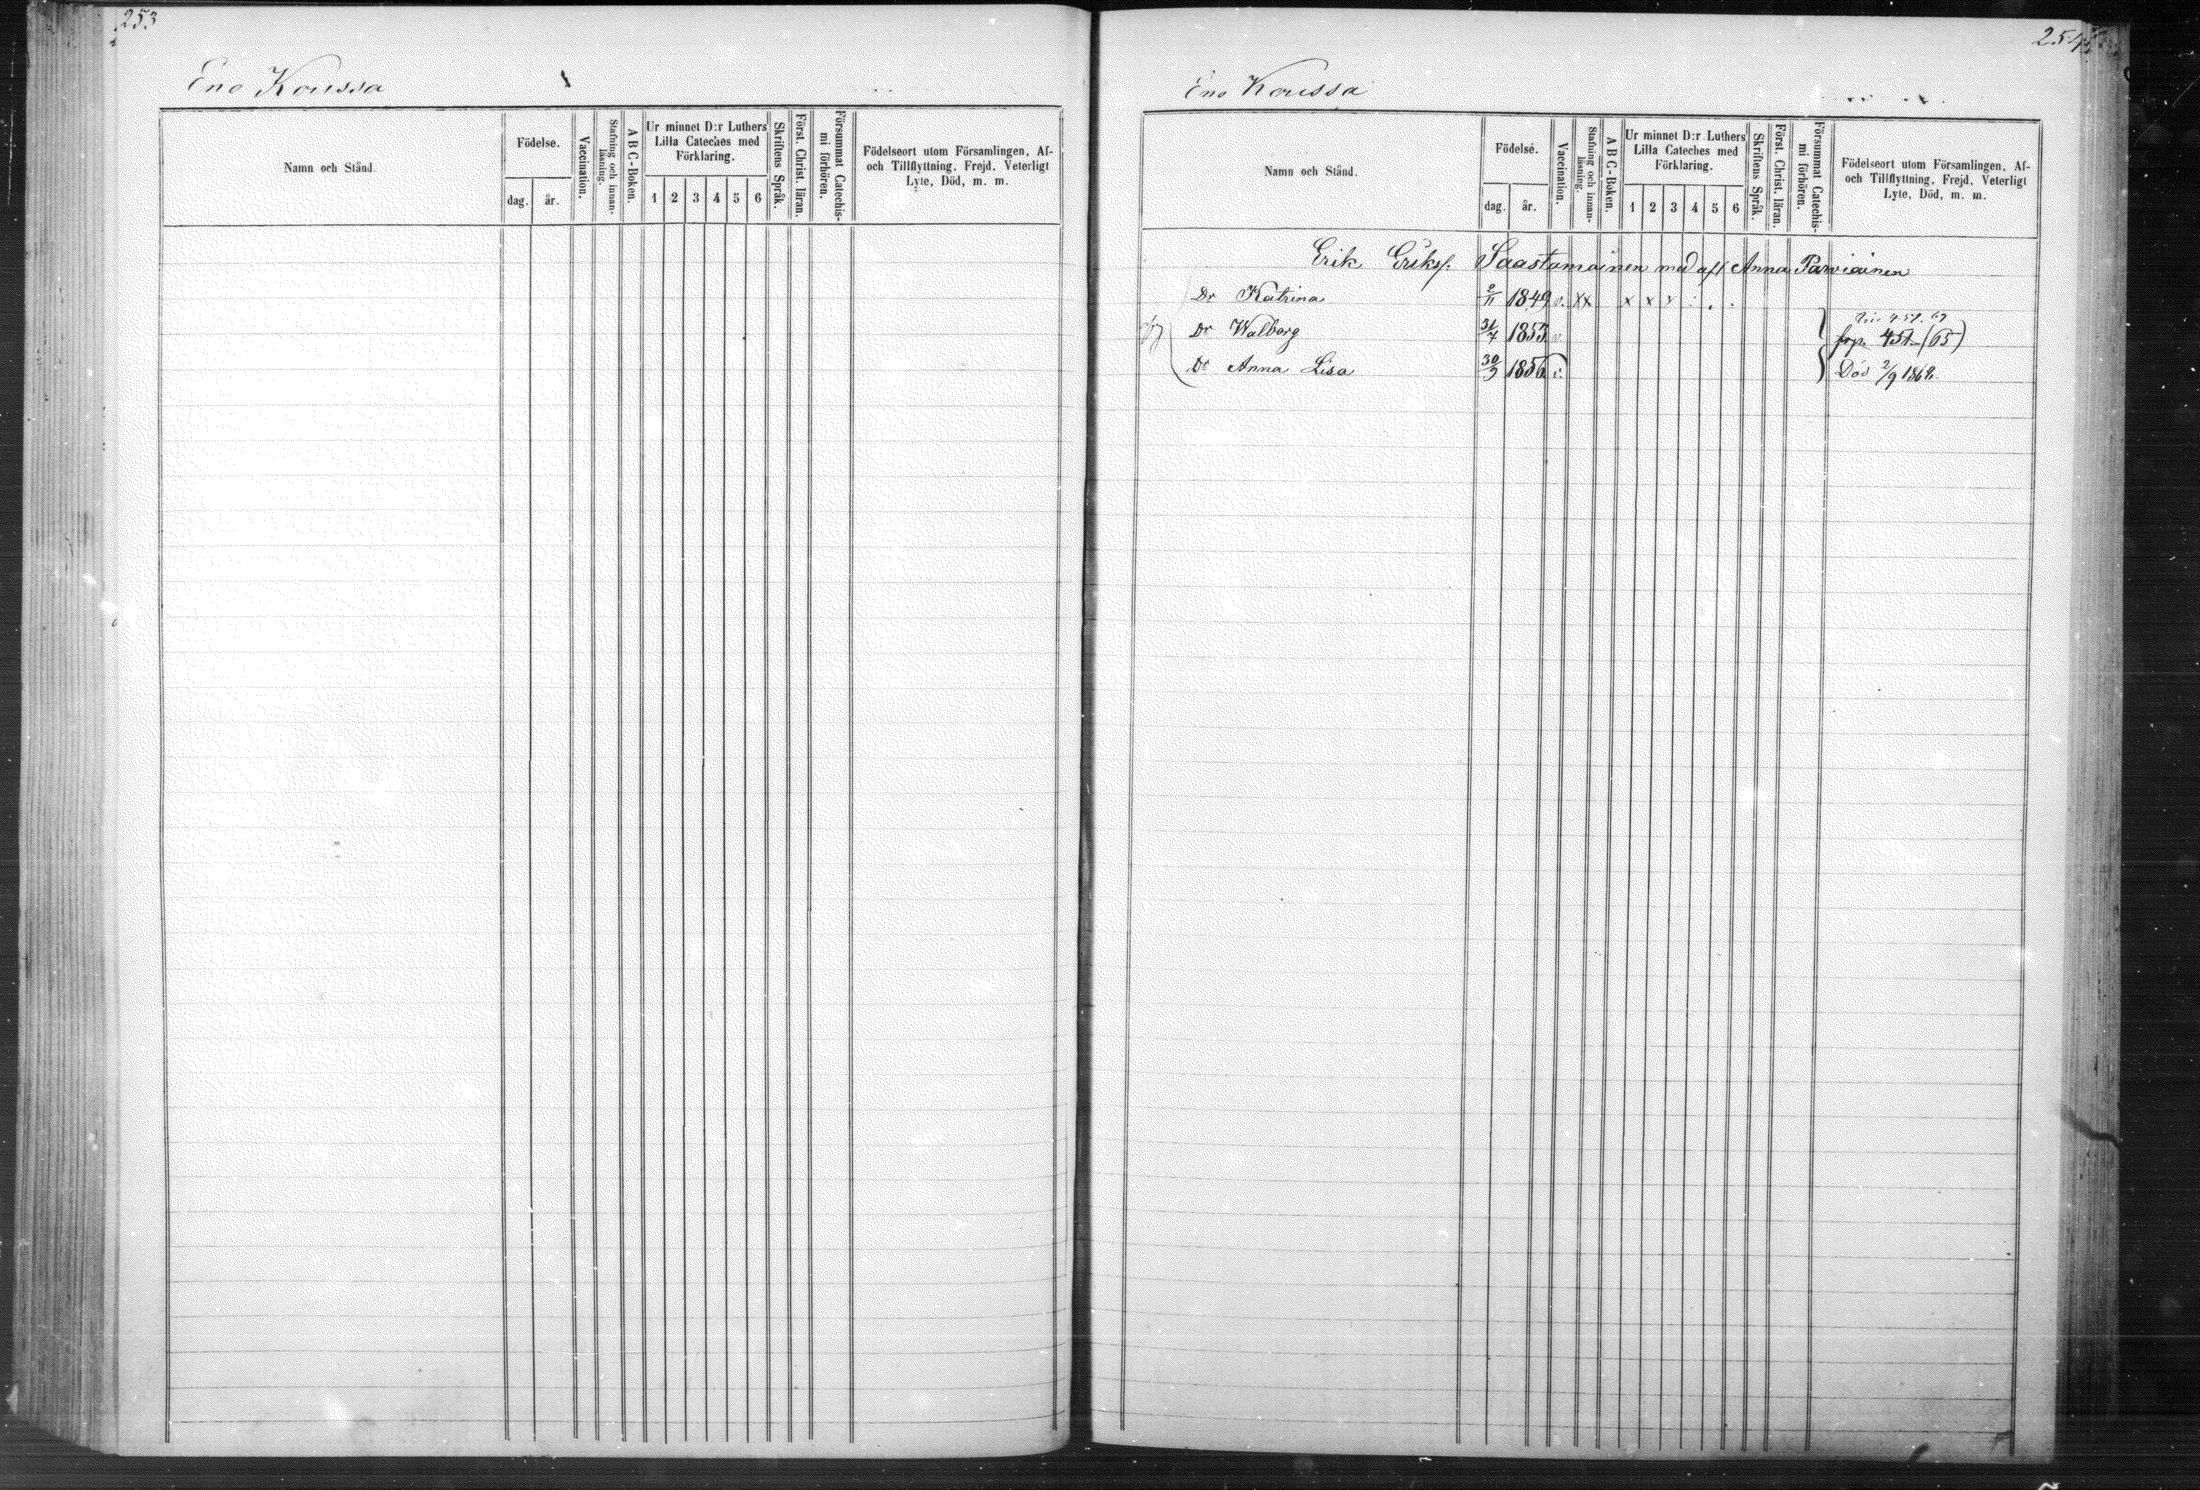 253
Eno Koussa
Namn och Stånd.
Födelse.
dag. år.
Vaccination.
Stafning och innan-
läsning.
A B C-Boken.
Ur minnet D:r Luthers
Lilla Cateches med
Förklaring.
1 2 3 4 5 6
Skriftens Språk.
Först. Christ. läran.
Försummat Catechis-
mi förhören.
Födelseort utom Församlingen, Af-
och Tillflyttning, Frejd, Veterligt
Lyte, Död, m. m.
254
Eno Koussa
Namn och Stånd.
Födelse.
dag. år.
Vaccination.
Stafning och innan-
läsning.
A B C-Boken.
Ur minnet D:r Luthers
Lilla Cateches med
Förklaring.
1 2 3 4 5 6
Skriftens Språk.
Först. Christ. läran.
Försummat Catechis-
mi förhören.
Födelseort utom Församlingen, Af-
och Tillflyttning, Frejd, Veterligt
Lyte, Död, m. m.
Erik Eriks. Saastamoinen med afl Anna Parviainen
Dr Katrina 2/11 1849 v. xx x x x
451. 67
Dr Walborg 31/7 1853 v 451 (65)
Dr Anna Lisa 30/9 1856 v. Död 2/9 1862.